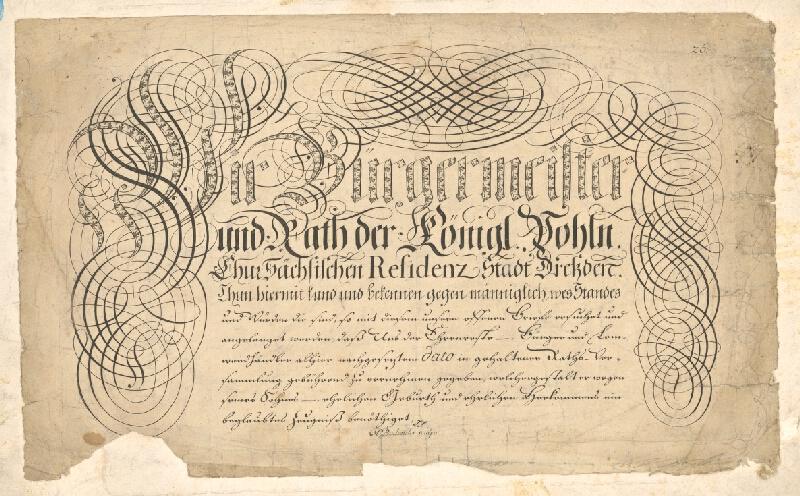 Wir Burgermeister
und Rath der Königl. Pohln.
Chur Sächsischen Residenz Stadt Dreßden.
Thun hiermit kund und bekennen gegen männiglich, wes Standes
und Würden die sind, so mit diesem unsern offenen Briefe ersuchet und
angelanget werden, daß Uns der Ehrenveste — Bürger und
alhier nachgesetztem dato in gehaltener Raths Ver-
sammlung gebührend zu vernehmen gegeben, welchergestalt er wegen
seines Sohnes — ehelichen Geburth und ehrlichen Herkommens ein
beglaubtes Zeugniß benöthiget